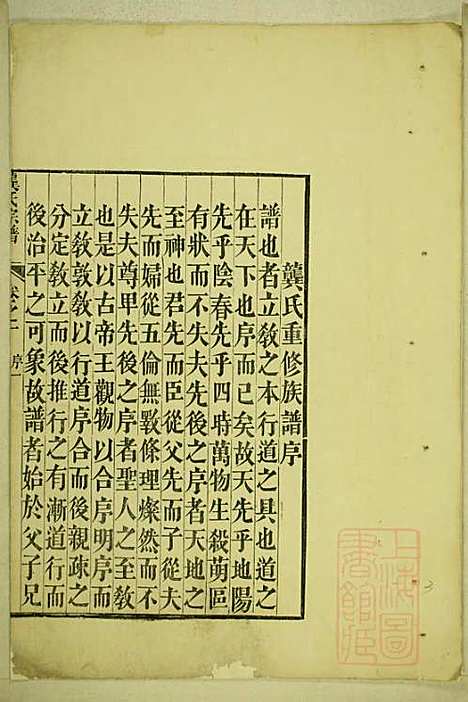 龔氏重修族譜序
譜也者立敎之本行道之具也道之
在天下也序而已矣故天先乎地陽
先乎陰春先乎四時萬物生殺萌區
有狀而不失夫先後之序者天地之
至神也君先而臣從父先而子從夫
先而婦從五倫無斁條理燦然而不
失夫尊卑先後之序者聖人之至敎
也是以古帝王觀物以合序明序而
立敎敦敎以行道序合而後親疎之
分定敎立而後推行之有漸道行而
後治平之可象故譜者始於父子兄
龔氏宗譜 卷之一 序
上海圖書館藏